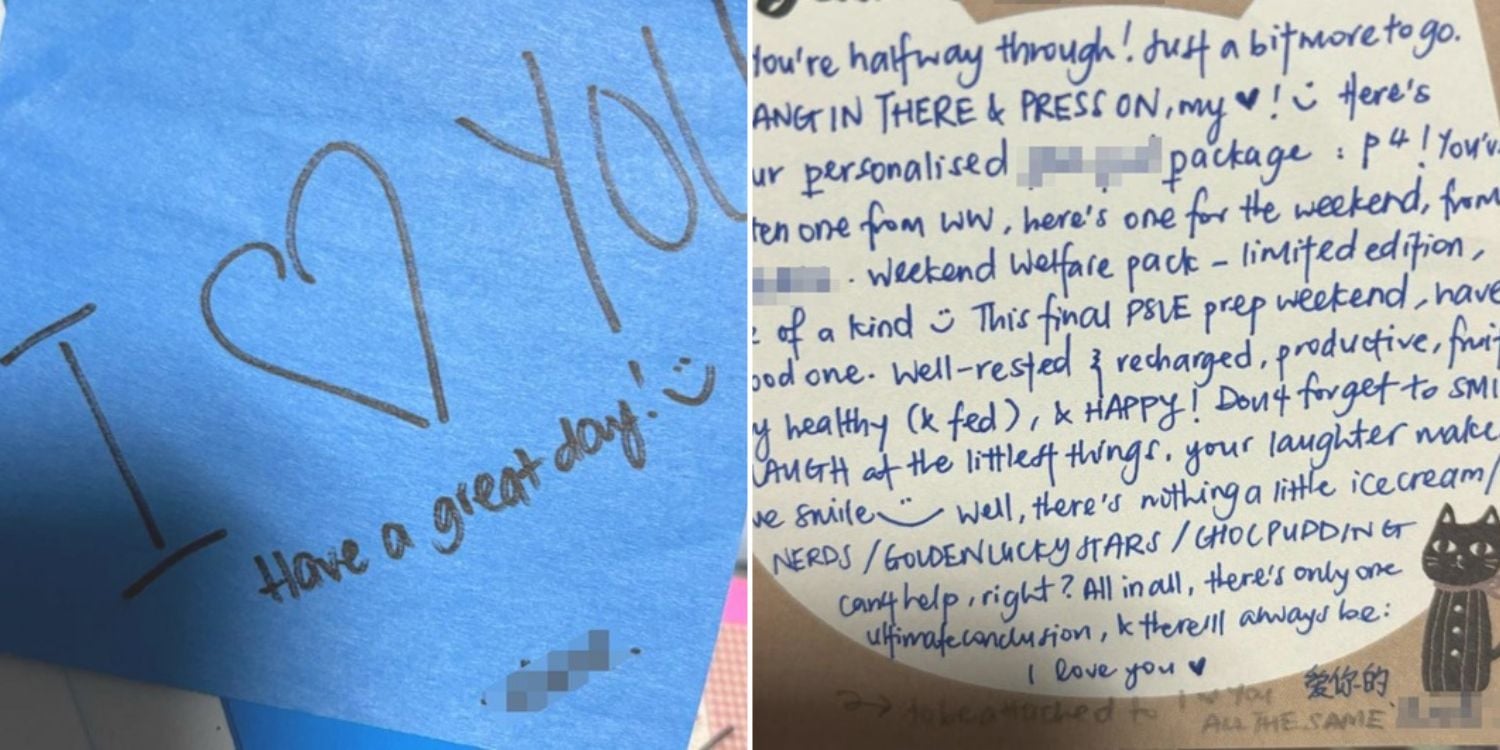 I ♥ YOU
Have a great day! :)
You're halfway through! Just a bit more to go.
ANG IN THERE & PRESS ON, my ♥! :) Here's
ur personalised package : p4! You'v
ten one from WW, here's one for the weekend, from
. Weekend Welfare pack - limited edition,
of a kind :) This final PSLE prep weekend, have
ood one. Well-rested & recharged, productive, fruit
y healthy (& fed), & HAPPY! Don't forget to SMI
AUGH at the littlest things. your laughter make
me smile :) Well, there's nothing a little ice cream/
NERDS / GOLDEN LUCKY STARS / CHOC PUDDING
can't help, right? All in all, there's only one
ultimate conclusion, & there'll always be:
I love you ♥
爱你的
→ to be attached to I ♥ YOU
ALL THE SAME